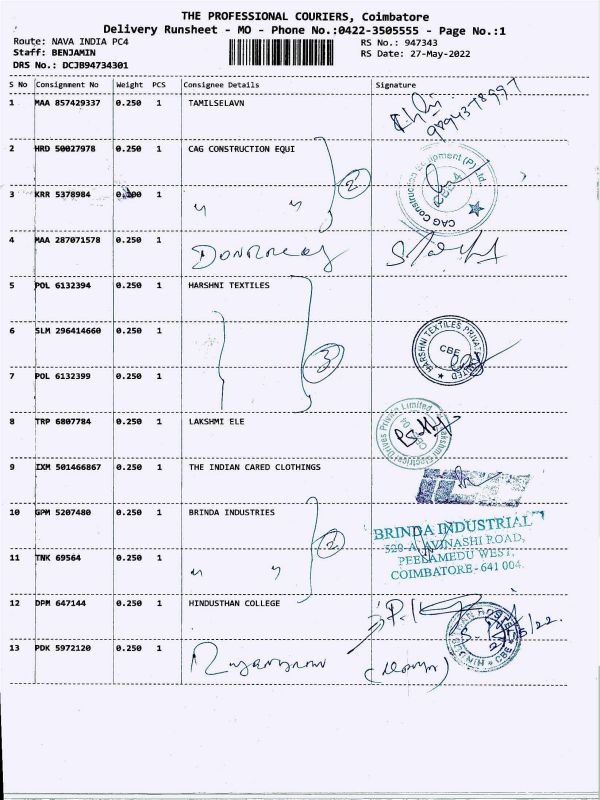 THE PROFESSIONAL COURIERS, Coimbatore
Delivery Runsheet - MO - Phone No.:0422-3505555 - Page No.:1
Route: NAVA INDIA PC4
RS No.: 947343
Staff: BENJAMIN
RS Date: 27-May-2022
DRS No.: DCJB94734301
S No Consignment No Weight PCS Consignee Details Signature
1 MAA 857429337 0.250 1 TAMILSELAVN
2 HRD 50027978 0.250 1 CAG CONSTRUCTION EQUI
2
CAG Construction Equipment (P) Ltd.
3 KRR 5378984 0.100 1 " "
4 MAA 287071578 0.250 1
5 POL 6132394 0.250 1 HARSHNI TEXTILES
6 SLM 296414660 0.250 1
3
HARSHNI TEXTILES PRIVATE LIMITED
CBE
7 POL 6132399 0.250 1
8 TRP 6807784 0.250 1 LAKSHMI ELE
Lakshmi Electrical Drives Private Limited
9 IXM 501466867 0.250 1 THE INDIAN CARED CLOTHINGS
10 GPM 5207480 0.250 1 BRINDA INDUSTRIES
2
BRINDA INDUSTRIAL
520-A, AVINASHI ROAD,
PEELAMEDU WEST,
COIMBATORE - 641 004.
11 TNK 69564 0.250 1 " "
12 DPM 647144 0.250 1 HINDUSTHAN COLLEGE
CBE
13 PDK 5972120 0.250 1